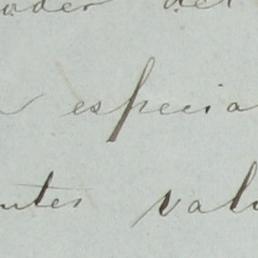 oder del
especia
ntes valu